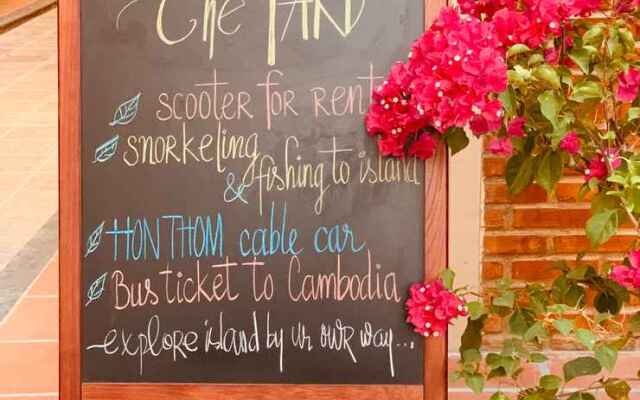 The
scooter for rent
snorkeling
& fishing to island
HON THOM cable car
Bus ticket to Cambodia
explore island by ur own way...